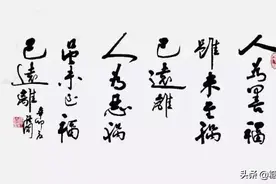 人為善福
雖未至禍
已遠離
人為惡禍
雖未至福
已遠離
头条